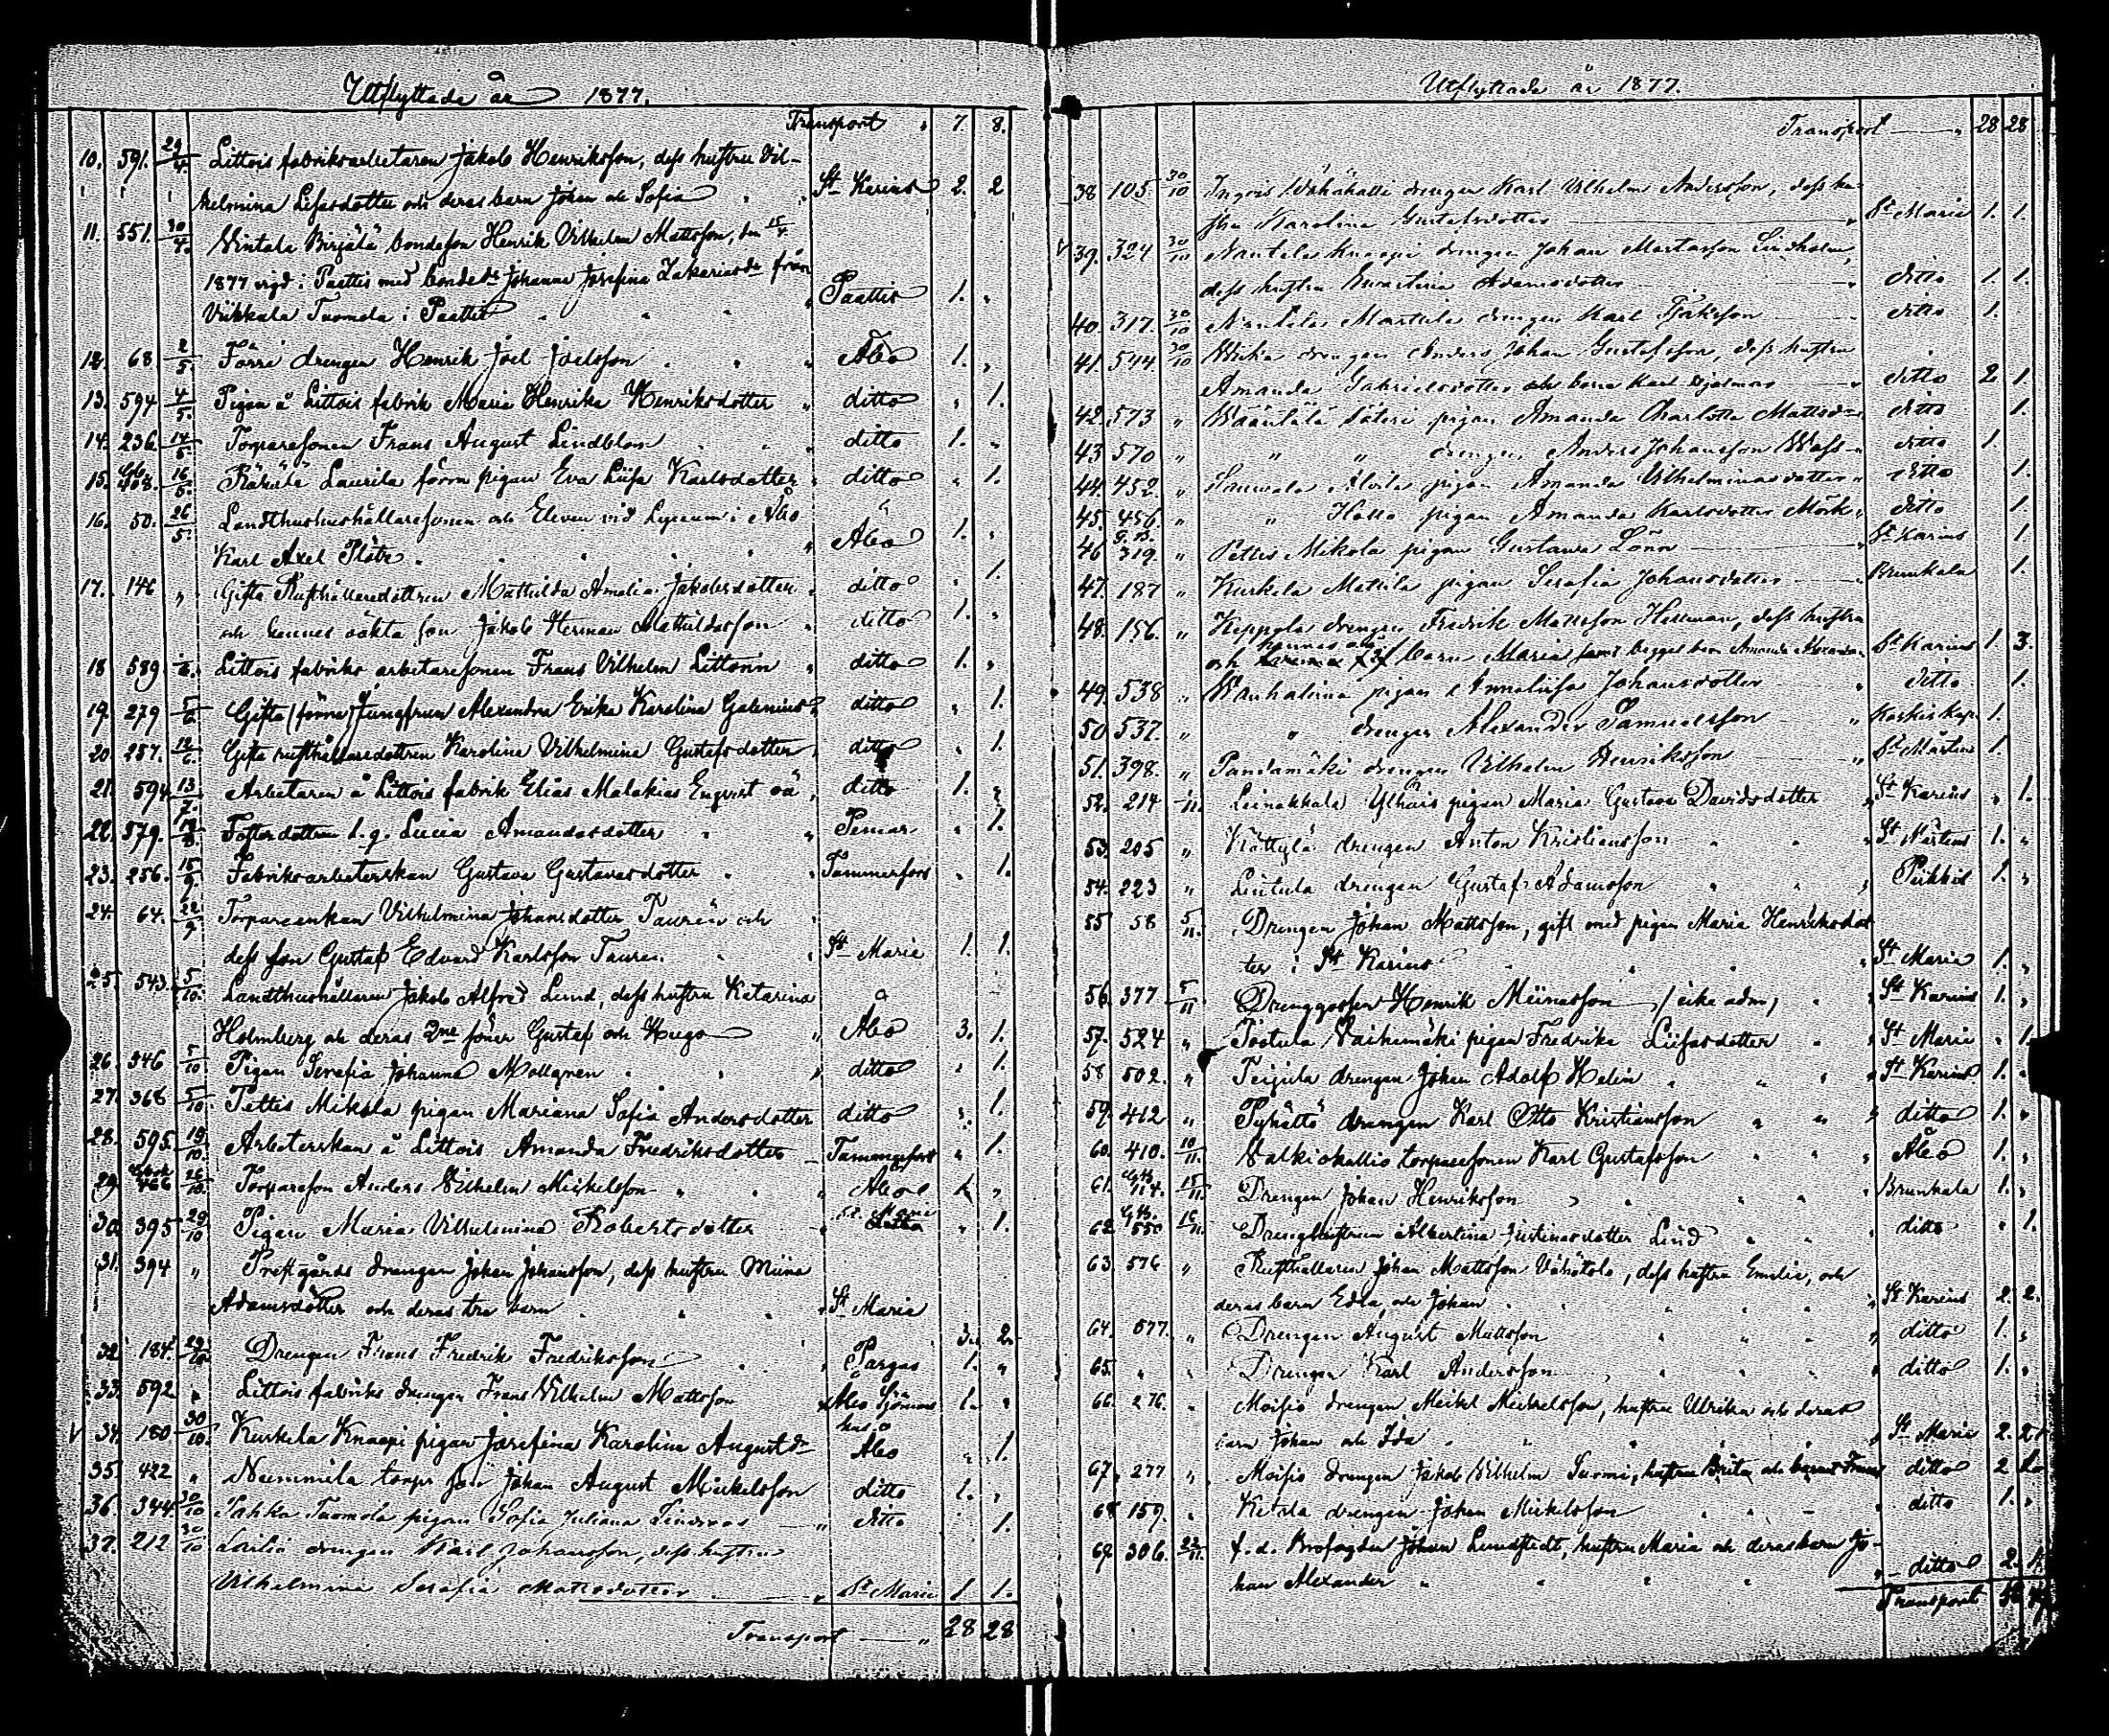 Utflyttade år 1877.
Transport „ 7. 8.
10. 591. 29/4. Littois fabriksarbetaren Jakob Henriksson, dess hustru Vil-
helmina Lisasdotter och deras barn Johan och Sofia St Karins 2. 2
11. 551. 30/4. Nintala Birjälä bondeson Henrik Vilhelm Mattsson, den 15/4
1877 vigd i Paattis med bonded:r Johanna Josefina Zakariasd:r från
Viikkala Tuomola i Paattis „ Paattis 1. „
12. 68. 2/5. Färri drengen Henrik Joel Joelsson „ Åbo 1. „
13. 594 4/5. Pigan å Littois fabrik Maria Henrika Henriksdotter „ ditto „ 1.
14. 236. 14/5. Torparesonen Frans August Lindblom ditto 1. „
15. 408. 16/5. Räkälä Laurila förra pigan Eva Lisa Karlsdotter „ ditto „ 1.
16. 50. 26/5. Landthushushållaresonen och Eleven vid Lyceum i Åbo
Karl Axel „ Åbo 1. „
17. 146 „ Gifta Rusthållaredottren Mathilda Amalia Jakobsdotter „ ditto „ 1.
och hennes oäkta son Jakob Herman Mathildasson „ ditto 1. „
18 589 Littois fabriks arbetaresonen Frans Vilhelm Littonin „ ditto 1. „
19. 279 5/6. Gifta (förra) Jungfrun Alexandra Erika Karolina Galenius „ ditto „ 1.
20. 257. 12/6. Gifta rusthållaredottren Karolina Vilhelmina Gustafsdotter „ ditto „ 1.
21. 594. 13/7. Arbetaren å Littois fabrik Elias Malakias Engvist oä „ ditto 1. „
22. 579. Fosterdottren s. g. Lucia Amandasdotter „ Pemar „ 1.
23. 256. 15/9. Fabriksarbeterskan Gustava Gustavasdotter „ Tammerfors „ 1.
24. 64. 22/9 Torpareenkan Vilhelmina Johansdotter Taurén och
dess son Gustaf Edvard Karlsson Taurén „ St Marie 1. 1.
25. 543. 5/10. Landthushållaren Jakob Alfred Lund, dess hustru Katarina
Holmberg och deras 2ne söner Gustaf och Hugo „ Åbo 3. 1.
26. 346 5/10 Pigan Serafia Johanna Mollgren „ ditto „ 1.
27. 368 5/10. Pettis Mikola pigan Mariana Sofia Andersdotter ditto „ 1.
28. 595. 19/10. Arbeterskan å Littois Amanda Fredriksdotter Tammerfors „ 1.
29. 466 26/10. Torpareson Anders Vilhelm Mickelsson „ Åbo 1. „
30. 395 29/10 Pigan Maria Vilhelmina Robertsdotter „ St. Marie „ 1.
31. 394 „ Prestgårds drengen Johan Johansson, dess hustru Miina
Adamsdotter och deras tre barn „ St Maria 3. 2.
32 184. 29/10. Drengen Frans Fredrik Fredriksson „ Pargas 1. „
33. 592 „ Littois fabriks drengen Frans Vilhelm Mattsson „ Åbo Sjömans 1. „
hus
34. 180 30/10. Kurkela Knaapi pigan Josefina Karolina Augustd:r Åbo „ 1.
35. 422 „ Nummila torps son Johan August Mickelsson ditto 1. „
36. 344. 30/10 Pahka Tuomola pigan Sofia Juliana Lindroos „ ditto 1.
37. 212 30/10 Lailia drengen Karl Johansson, dess hustru
Vilhelmina Serafia Mattsdotter „ St Marie 1. 1.
Transport „ 28 28
Utflyttade år 1877.
Transport „ 28 28
38 105 30/10 Ingois Vähähalli drengen Karl Vilhelm Andersson, dess hu-
stru Karolina Gustafsdotter „ St Maria 1. 1.
39. 324 30/10 Nautela Knaapi drengen Johan Mårtensson Lindholm,
dess hustru Ernestina Adamsdotter „ ditto 1. 1.
40. 317. 30/10 Nautela Martila drengen Karl Isaksson ditto 1.
41. 544 30/10 Wiika drengen Anders Johan Gustafsson, dess hustru
Amanda Gabrielsdotter och barn Karl Hjalmar „ ditto 2. 1.
42. 573 „ Wääntälä Säteri pigan Amanda Charlotta Mattsd:r ditto 1.
43 570 „ „ „ drengen Anders Johansson Wass „ ditto 1.
44. 452. „ Sauvala Alvila pigan Amanda Vilhelminasdotter „ ditto 1.
45. 456. „ „ Hollo pigan Amanda Karlsdotter Mörk „ ditto 1.
46 319. „ Pettis Mikola pigan Gustava Lönn „ St Karins 1.
47. 187 „ Kurkela Mattila pigan Serafia Johansdotter Brunkala 1.
48. 156. „ Keppola drengen Fredrik Mattsson Hellman, dess hustru
och hennes barn Maria samt begges barn Amanda Alexandra St Karins 1. 3.
49. 538 „ Wanhalinna pigan Annalisa Johansdotter „ ditto 1.
50 537. „ „ drengen Alexander Samuelsson „ Koskis kap. 1.
51. 398. „ Pandamäki drengen Vilhelm Henriksson „ St Mårtens 1.
52. 214 Leinakkala Ylhäis pigan Maria Gustava Davidsdotter „ St Karins „ 1.
53. 205 „ Kättylä drengen Anton Kristiansson „ St Mårtens 1. „
54. 223 „ Lintula drengen Gustaf Adamsson „ Piikkis 1. „
55 58 5/11. Drengen Johan Mattsson, gift med pigan Maria Henriksdot
ter i St Karins „ St Marie 1. „
56. 377 5/11 Drenggossen Henrik Miinasson (icke adm) „ St Karins 1. „
57. 524 „ Töötula Vaihemäki pigan Fredrika Lisasdotter „ St Marie „ 1.
58 502. „ Teijula drengen Johan Adolf Helin „ St Karins 1. „
59. 412 „ Pyhältö drengen Karl Otto Kristiansson „ ditto 1. „
60. 410. 10/11. Valkiakallio torparesonen Karl Gustafsson „ Åbo 1. „
61. 114. 15/11. Drengen Johan Henriksson „ Brunkala 1. „
62. 550 16/11. Drenghustrun Albertina Justinasdotter Lind „ ditto „ 1.
63. 576 „ Rusthållaren Johan Mattsson Vähätalo, dess hustru Emilia, och
deras barn Edla, och Johan „ St Karins 2. 2.
64. 577. „ Drengen August Mattsson „ ditto 1. „
65. „ „ Drengen Karl Andersson „ ditto 1. „
66. 276. „ Moisio drengen Mickel Mickelsson, hustru Ulrika och deras
barn Johan och Ida „ St Maria 2. 2.
67. 277 „ Moisio drengen Jakob Vilhelm Surmi, hustru Brita och barnet Frans ditto 2
68 159. „ Ketala drengen Johan Mickelsson „ ditto 1. „
69. 306. 22/11. f. d. Brofogden Johan Lundstedt, hustru Maria och deras barn Jo-
han Alexander „ „ ditto 2. 1.
Transport